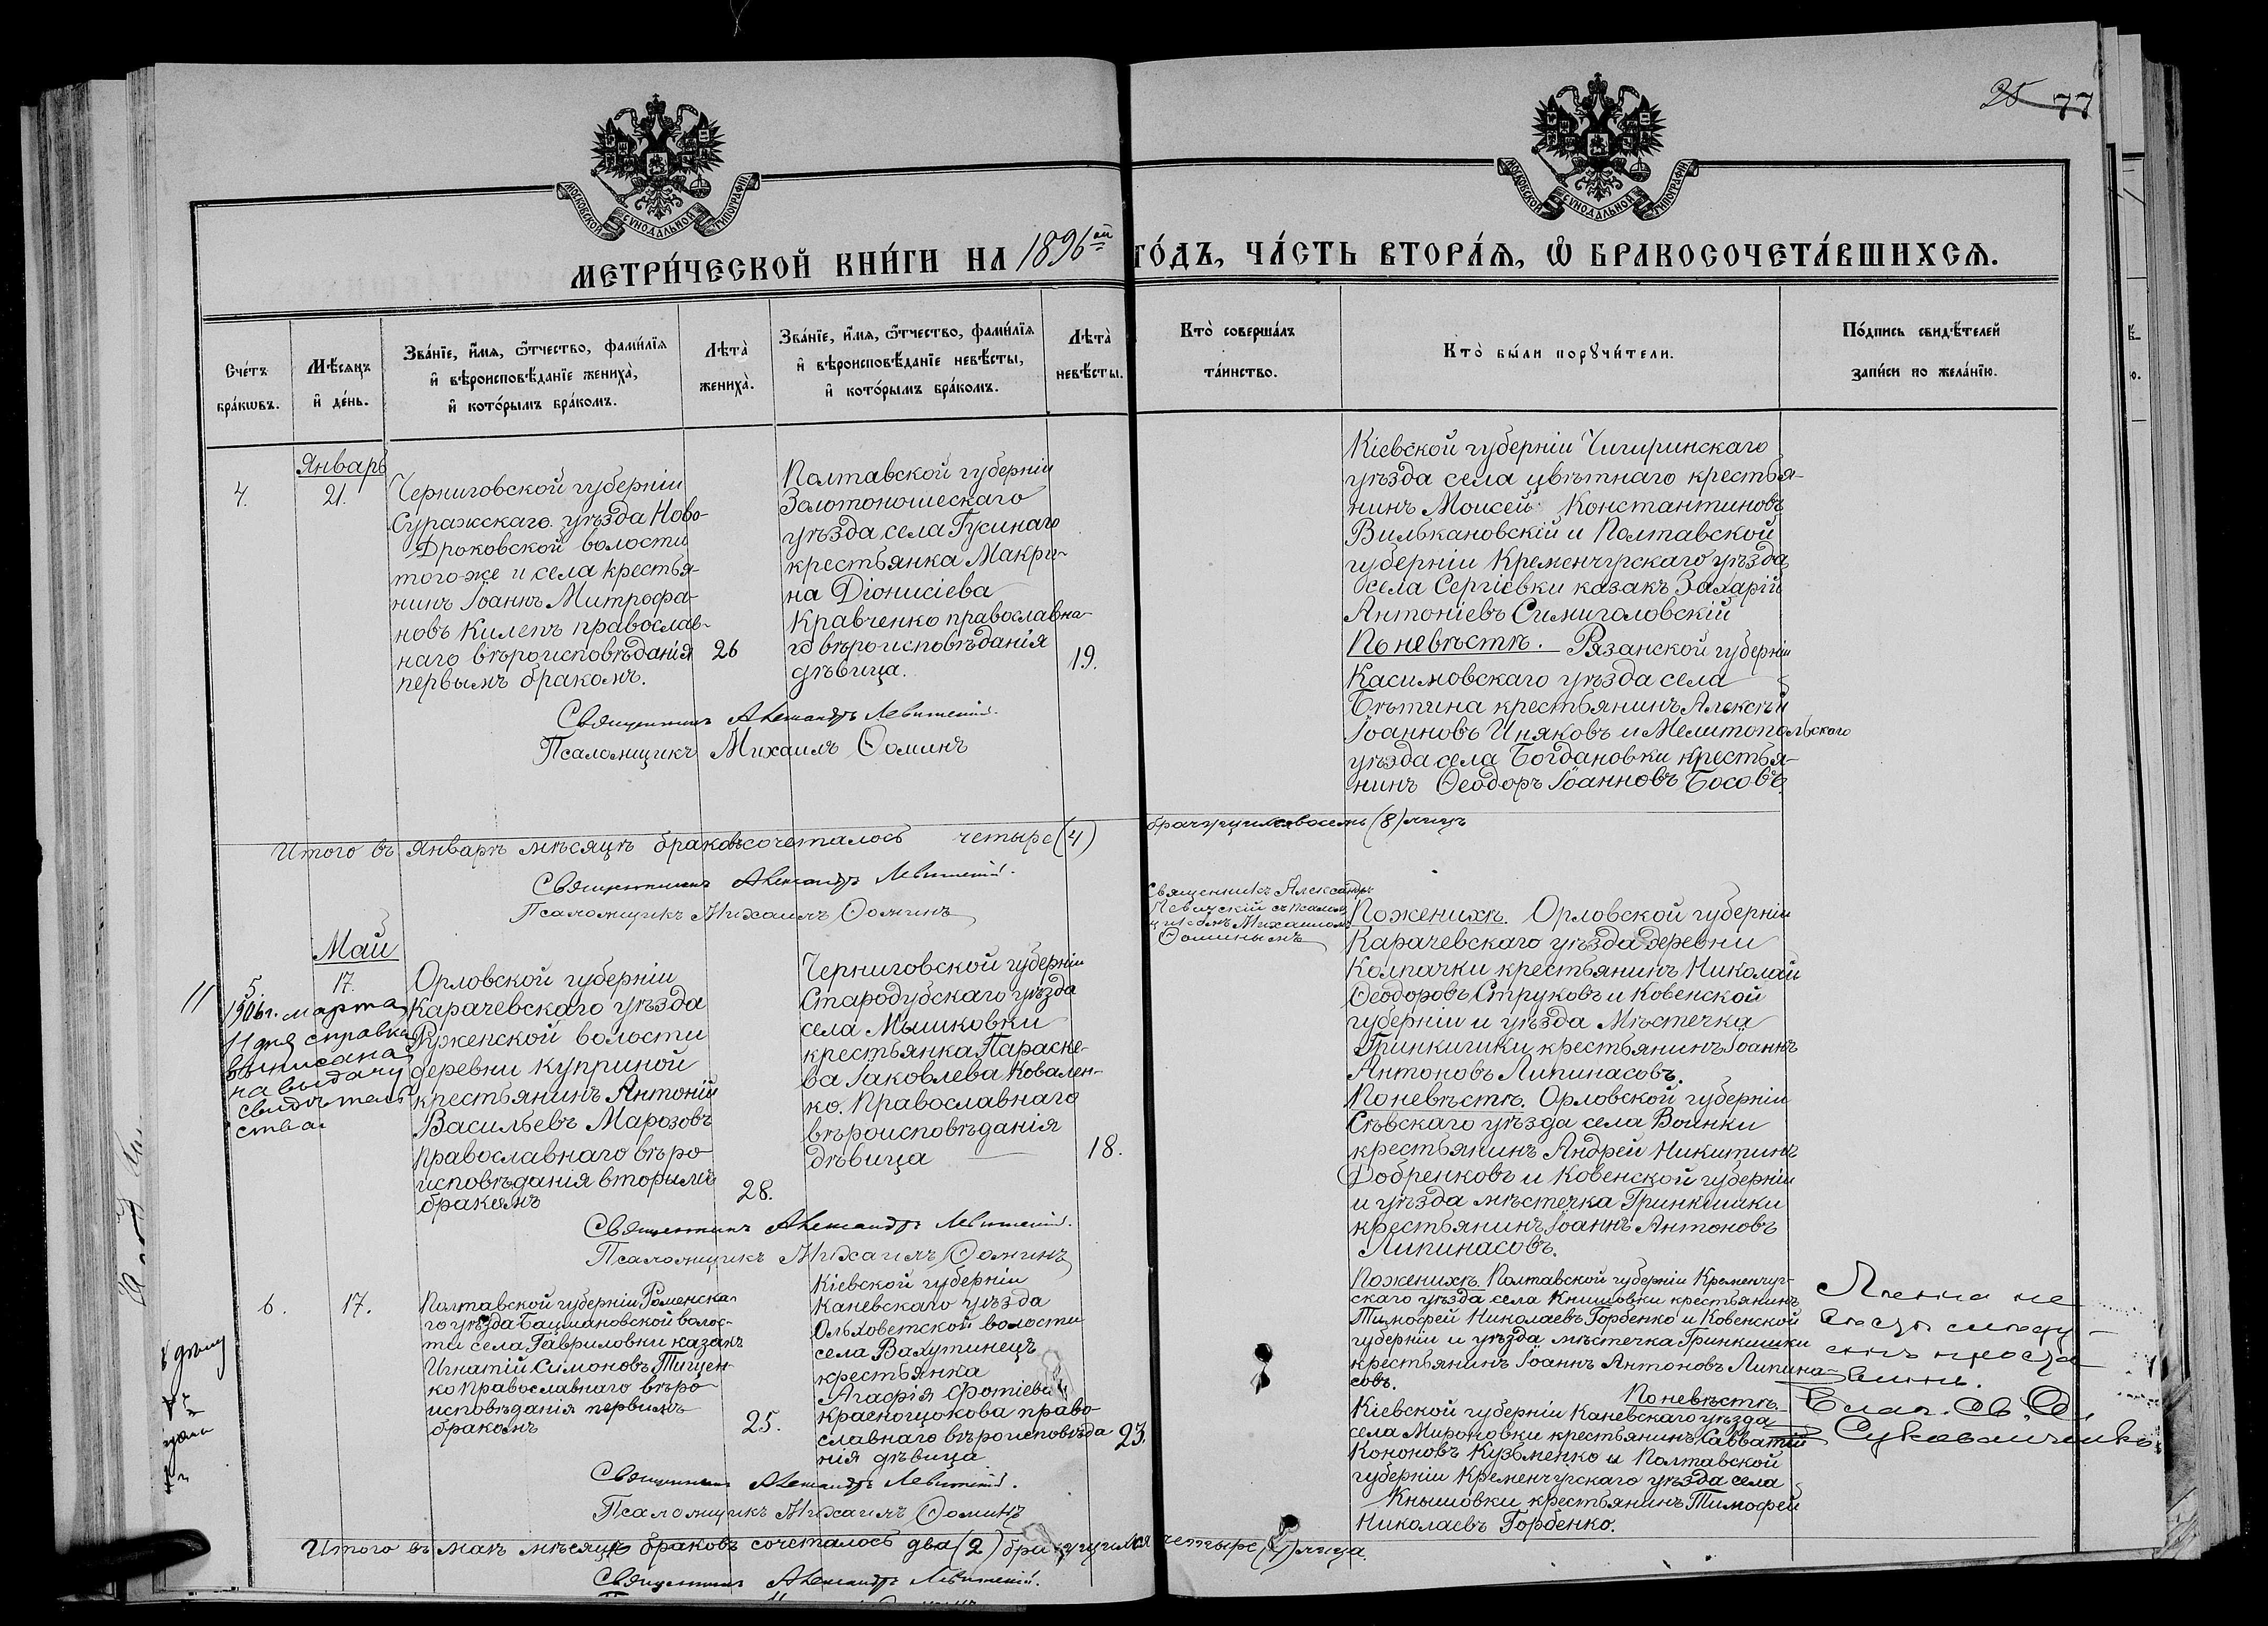 25 77
МОСКОВСКОЙ СѴНОДАЛЬНОЙ ТИПОГРАФІИ
МОСКОВСКОЙ СѴНОДАЛЬНОЙ ТИПОГРАФІИ
МЕТРИ́ЧЕСКОЙ КНИ́ГИ НА 1896ой ГО́ДЪ, ЧА́СТЬ ВТОРА́Ѧ, Ѽ БРАКОСОЧЕТА́ВШИХСѦ.
Сче́тъ
бра́кѡвъ.
Мѣ́сѧцъ
и҆ де́нь.
Зва́нїе, и҆́мѧ, ѻ҆́тчество, фами́лїѧ
и҆ вѣроисповѣ́данїе жениха̀,
и҆ кото́рымъ бра́комъ.
Лѣта̀
жениха̀.
Зва́нїе, и҆́мѧ, ѻ҆́тчество, фами́лїѧ
и҆ вѣроисповѣ́данїе невѣ́сты,
и҆ кото́рымъ бра́комъ.
Лѣта̀
невѣ́сты.
Кто̀ соверша́лъ
та́инство.
Кто̀ бы́ли порꙋчи́тели.
По́дпись свидѣ́телей
за́писи по жела́нїю.
Январь
4.
21.
Черниговской губерніи
Суражскаго уѣзда Ново-
Дроковской волости
того-же и села крестья-
нинъ Іоаннъ Митрофа-
новъ Килепъ православ-
наго вѣроисповѣданія
первымъ бракомъ.
26
Полтавской губерніи
Золотоношескаго
уѣзда села Гусинаго
крестьянка Макри-
на Діонисіева
Кравченко православна-
го вѣроисповѣданія
дѣвица.
19.
Кіевской губерніи Чигиринскаго
уѣзда села цвѣтнаго крестья-
нинъ Моисей Константиновъ
Вилькановскій и Полтавской
губерніи Кременчугскаго уѣзда
села Сергіевки казакъ Захарій
Антоніевъ Симиголовскій
По невѣстѣ. Рязанской губерніи
Касимовскаго уѣзда села
Бѣтина крестьянинъ Алексѣй
Іоанновъ Иняковъ и Мелитопольского
уѣзда села Богдановки крестья-
нинъ Ѳеодоръ Іоанновъ Босовъ
Священникъ Александръ Левитскій.
Псаломщикъ Михаилъ Ѳоминъ
Итого въ Январѣ мѣсяцѣ браковъ сочеталось четыре (4) брачущихся восемь (8) лицъ
Священникъ Александръ Левитскій.
Псаломщикъ Михаилъ Ѳоминъ
Май
5.
17.
11
1906 г. марта
11 дня справка
выписана
на выдачу
свидѣтель
ства
Орловской губерніи
Карачевскаго уѣзда
Рженской волости
деревни Куприной
крестьянинъ Антоній
Васильевъ Марозовъ
православнаго вѣро
исповѣданія вторымъ
бракомъ
28.
Черниговской губерніи
Стародубскаго уѣзда
села Мышковки
крестьянка Параске-
ва Іаковлева Ковален-
ко. Православнаго
вѣроисповѣданія
дѣвица
18.
Священникъ Александръ
Левицскій съ псалом
щикомъ Михаиломъ
Ѳоминымъ
По женихѣ. Орловской губерніи
Карачевскаго уѣзда деревни
Колпачки крестьянинъ Николай
Ѳеодоровъ Струковъ и Ковенской
губерніи и уѣзда Мѣстечка
Гринкишки крестьянинъ Іоаннъ
Антоновъ Липинасовъ.
По невѣстѣ. Орловской губерніи
Сѣвскаго уѣзда села Воинки
крестьянинъ Андрей Никитинъ
Добренковъ и Ковенской губерніи
и уѣзда мѣстечка Гринкишки
крестьянинъ Іоаннъ Антоновъ
Липинасовъ.
Священникъ Александръ Левитскій.
Псаломщикъ Михаилъ Ѳоминъ
6.
17.
Полтавской губерніи Роменска-
го уѣзда Бацмановской волос-
ти села Гавриловки казакъ
Игнатій Симоновъ Тищен-
ко православнаго вѣро
исповѣданія первымъ
бракомъ
25.
Кіевской губерніи
Каневскаго уѣзда
Ольховетской волости
села Вахутинецъ
крестьянка
Агафія Фотіева
Краснощокова право-
славнаго вѣроисповѣда
нія дѣвица
23.
По женихѣ. Полтавской губерніи Кременчуг-
скаго уѣзда села Кнышовки крестьянинъ
Тимофей Николаевъ Горбенко и Ковенской
губерніи и уѣзда мѣстечка Гринкишки
крестьянинъ Іоаннъ Антоновъ Липина-
совъ.
По невѣстѣ.
Кіевской губерніи Каневскаго уѣзда
села Мироновки крестьянинъ Савватій
Кононовъ Кузьменко и Полтавской
губерніи Кременчугскаго уѣзда села
Кнышовки крестьянинъ Тимофей
Николаевъ Горбенко.
Благ. Св. Ѳ.
Священникъ Александръ Левитскій.
Псаломщикъ Михаилъ Ѳоминъ
Итого въ маѣ мѣсяцѣ браковъ сочеталось два (2) брачущихся четыре (4) лица.
Священникъ Александръ Левитскій.